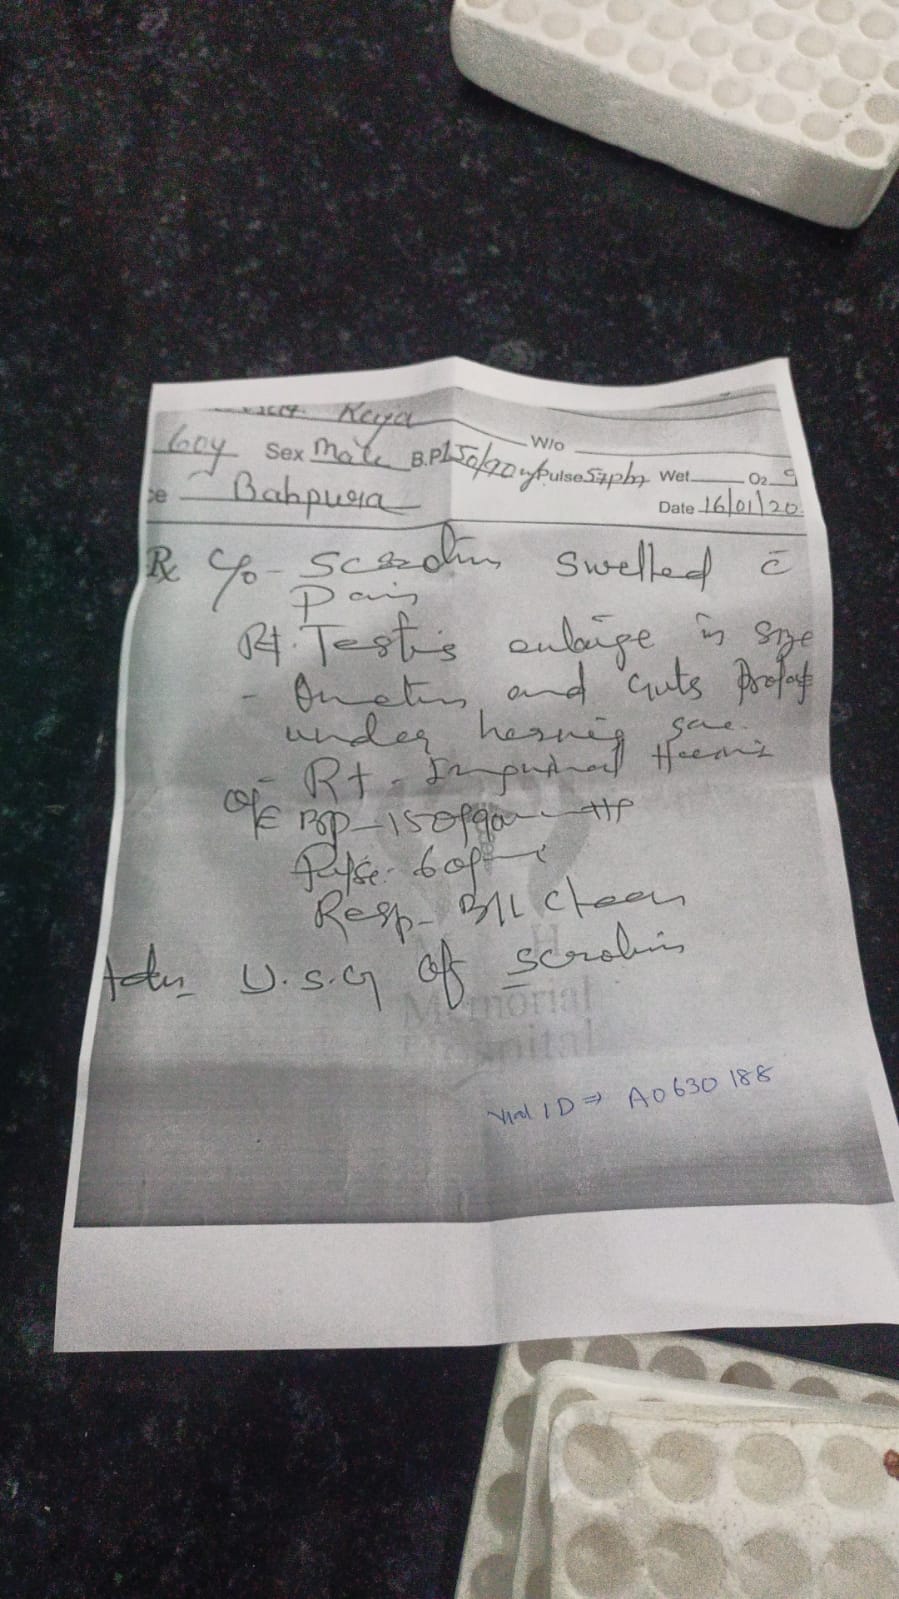 Keya
60y Sex Male B.P 150/90 Pulse 57 Wet. O2 9
W/o
Bahpura Date 16/01/20
Rx C/o - Scrotum Swelled c̄
Pain
Rt. Testis enlarge in size
- and Guts
under hernia
- Rt - Inguinal
O/E BP - 150/90
Pulse - 60
Resp - B/L Clear
Adv U.S.G of Scrotum
Memorial
Hospital
Vial ID ⇒ A0630188